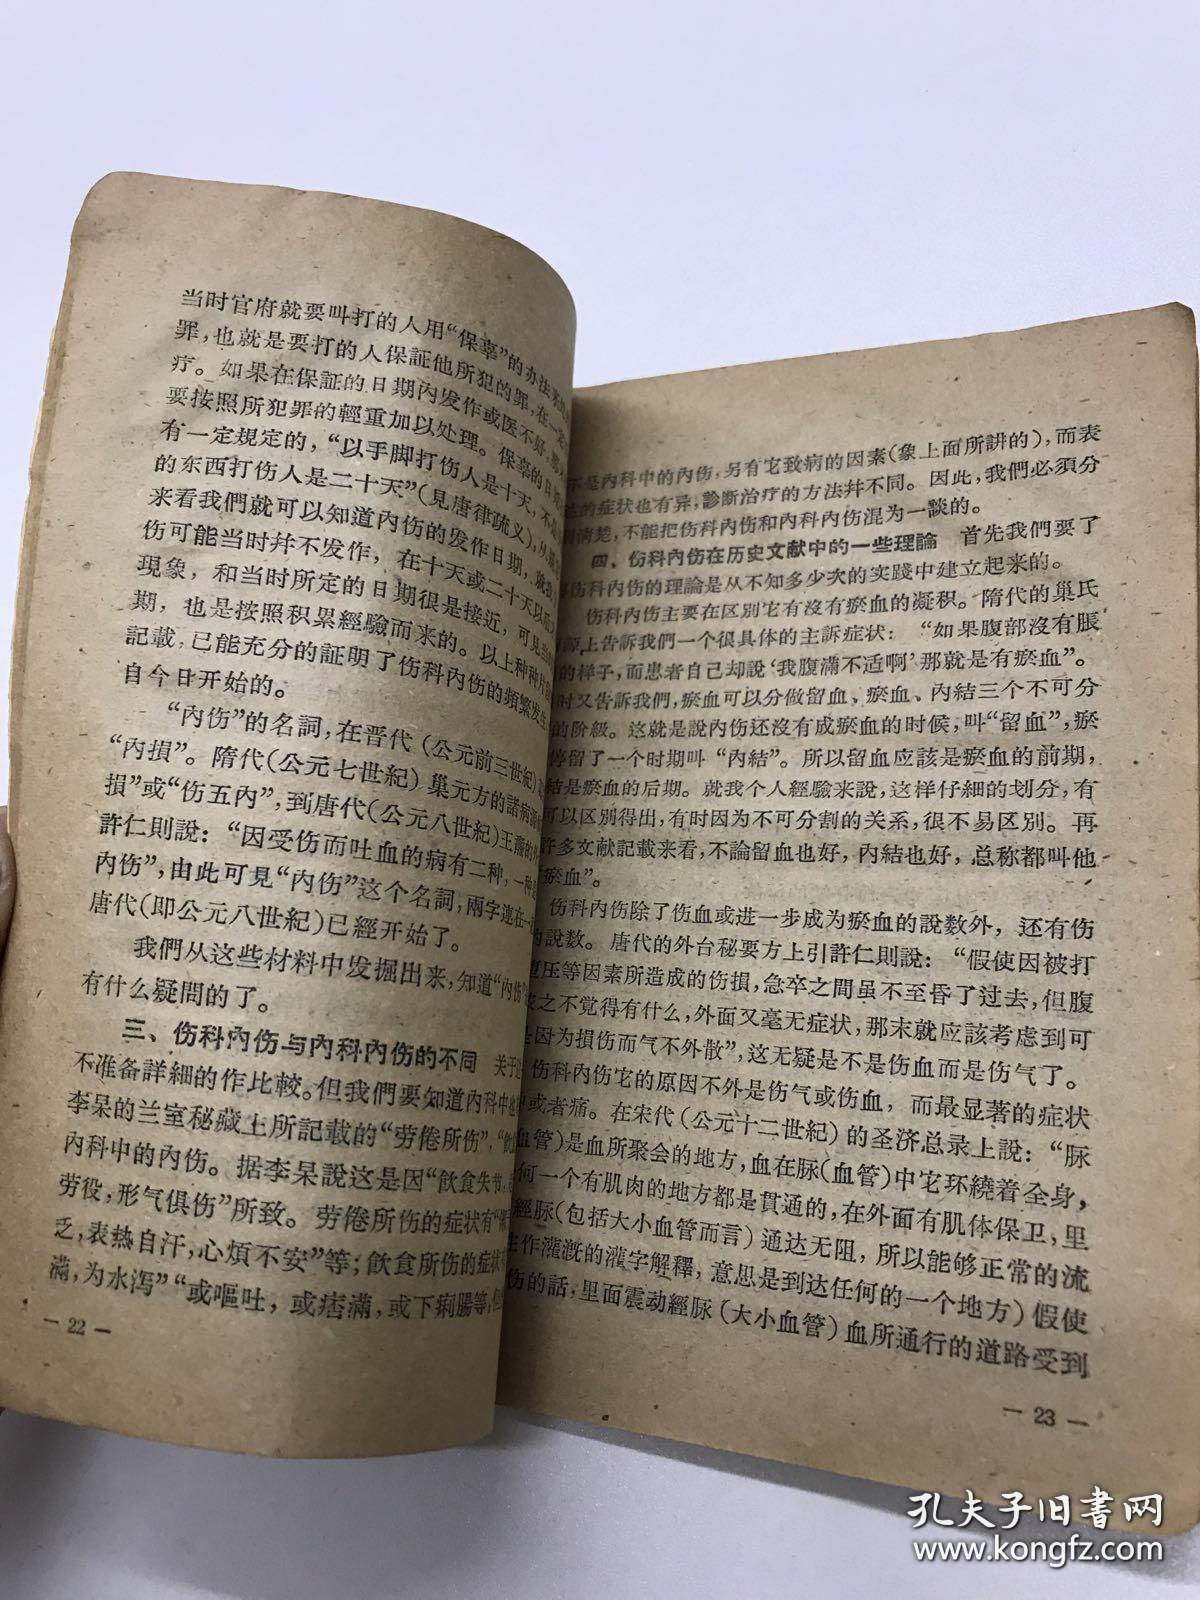 当时官府就要叫打的人用“保辜”的办法来
罪，也就是要打的人保証他所犯的罪，在一定
疗。如果在保証的日期內发作或医不好，那
要按照所犯罪的輕重加以处理。保辜的日
有一定規定的，“以手脚打伤人是十天，不是
的东西打伤人是二十天”（見唐律疏义），从
来看我們就可以知道內伤的发作日期，就
伤可能当时幷不发作，在十天或二十天以
現象，和当时所定的日期很是接近，可見当
期，也是按照积累經驗而来的。以上种种片
記載，已能充分的証明了伤科內伤的頻繁发生
自今日开始的。
“內伤”的名詞，在晋代（公元前三世紀）
“內損”。隋代（公元七世紀）巢元方的諸病源
損”或“伤五內”，到唐代（公元八世紀）王燾的外
許仁則說：“因受伤而吐血的病有二种，一种
內伤”，由此可見“內伤”这个名詞，兩字連在一
唐代（即公元八世紀）已經开始了。
我們从这些材料中发掘出来，知道“內伤
有什么疑問的了。
三、伤科內伤与內科內伤的不同　关于
不准备詳細的作比較。但我們要知道內科中
李杲的兰室秘藏上所記載的“劳倦所伤”，“飲
內科中的內伤。据李杲說这是因“飲食失节，
劳役，形气俱伤”所致。劳倦所伤的症状有
乏，表热自汗，心煩不安”等；飲食所伤的症状
滿，为水泻”“或嘔吐，或痞滿，或下痢腸等，
— 22 —
不是內科中的內伤，另有它致病的因素（象上面所講的），而表
达的症状也有异，診断治疗的方法幷不同。因此，我們必須分
清楚，不能把伤科內伤和內科內伤混为一談的。
四、伤科內伤在历史文献中的一些理論　首先我們要了
伤科內伤的理論是从不知多少次的实踐中建立起来的。
伤科內伤主要在区別它有沒有瘀血的凝积。隋代的巢氏
源上告訴我們一个很具体的主訴症状：“如果腹部沒有脹
的样子，而患者自己却說‘我腹滿不适啊’那就是有瘀血”。
时又告訴我們，瘀血可以分做留血、瘀血、內結三个不可分
的阶級。这就是說內伤还沒有成瘀血的时候，叫“留血”，瘀
停留了一个时期叫“內結”。所以留血应該是瘀血的前期，
結是瘀血的后期。就我个人經驗来說，这样仔細的划分，有
可以区別得出，有时因为不可分割的关系，很不易区別。再
許多文献記載来看，不論留血也好，內結也好，总称都叫他
瘀血”。
伤科內伤除了伤血或进一步成为瘀血的說数外，还有伤
的說数。唐代的外台秘要方上引許仁則說：“假使因被打
压等因素所造成的伤損，急卒之間虽不至昏了过去，但腹
之不覚得有什么，外面又毫无症状，那末就应該考虑到可
因为損伤而气不外散”，这无疑是不是伤血而是伤气了。
伤科內伤它的原因不外是伤气或伤血，而最显著的症状
或者痛。在宋代（公元十二世紀）的圣济总录上說：“脉
血管）是血所聚会的地方，血在脉（血管）中它环繞着全身，
何一个有肌肉的地方都是貫通的，在外面有肌体保卫，里
經脉（包括大小血管而言）通达无阻，所以能够正常的流
作灌漑的灌字解釋，意思是到达任何的一个地方）假使
伤的話，里面震动經脉（大小血管）血所通行的道路受到
— 23 —
孔夫子旧书网
www.kongfz.com